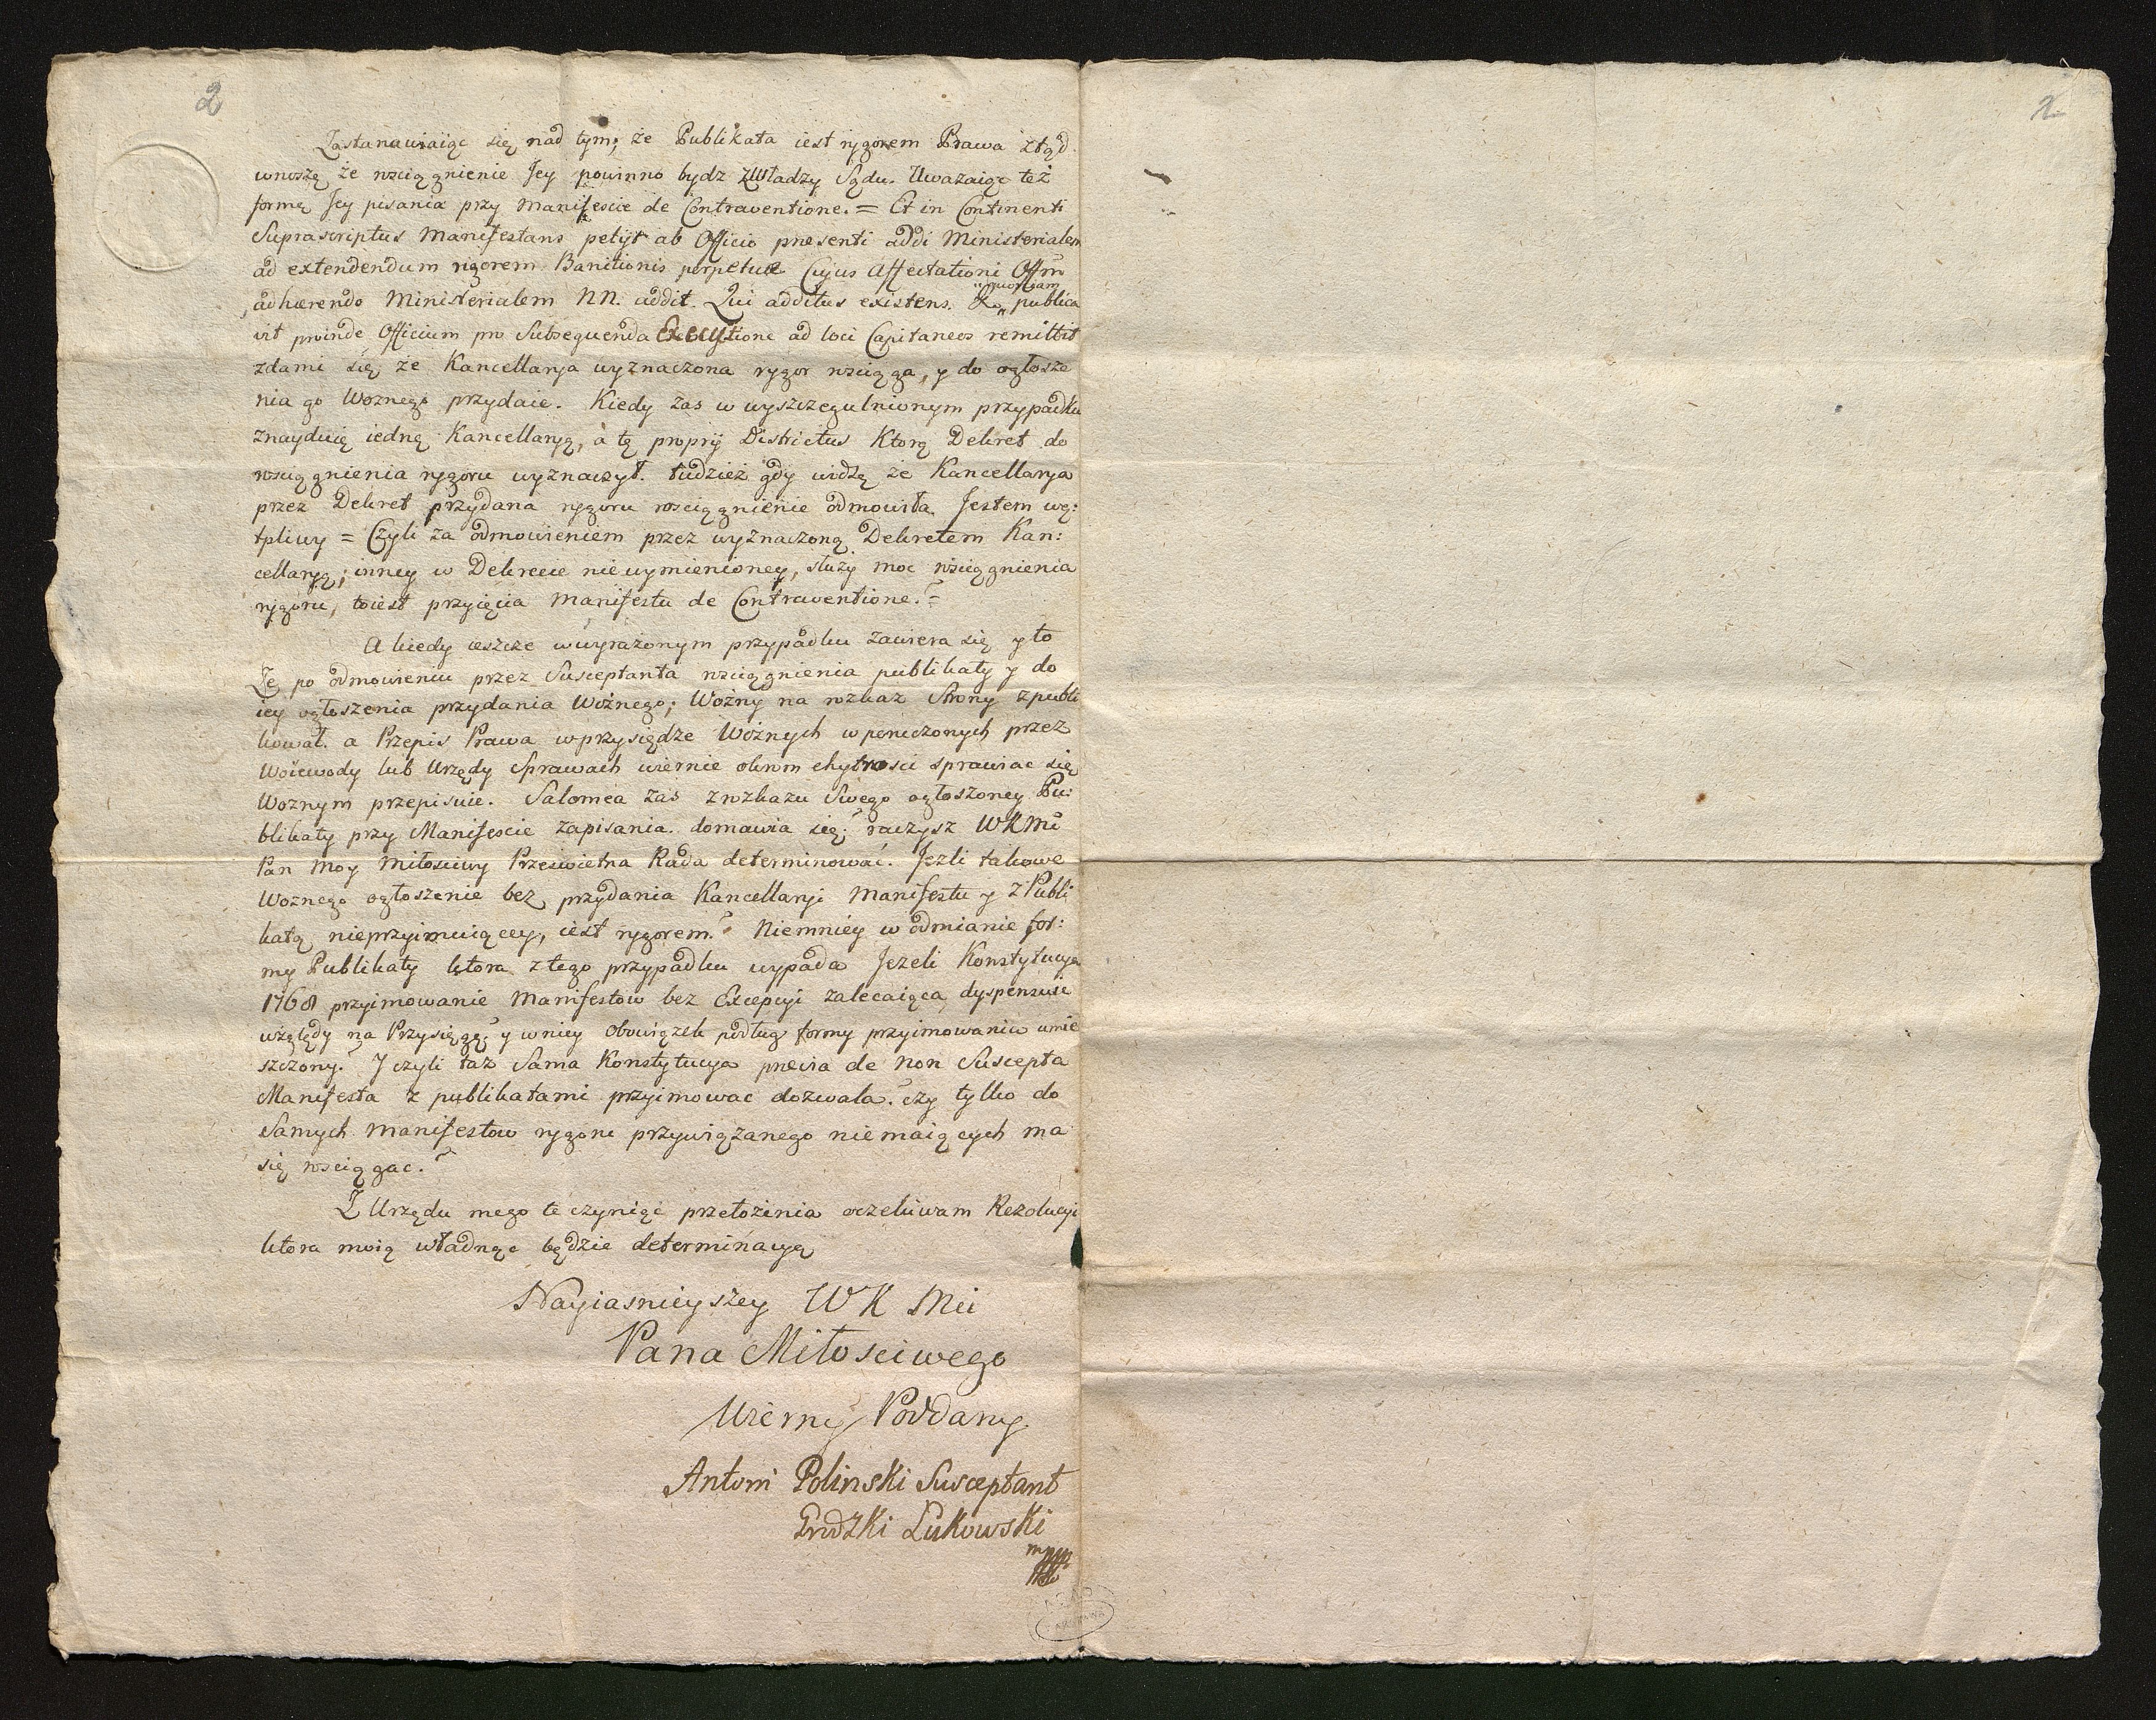 2
2
Zastanawiaiąc się nad tym, że Publikata iest rygorem Prawa ztąd
wnoszę że rosciągnienie Jey powinno bydz zWładzy Sądu. Uwazaiąc też
formę Jey pisania przy Manifescie de Contraventione. = Et in Continenti
Suprascriptus Manifestans petijt ab Officio presenti addi Ministerialem
ad extendendum rigorem Banitionis perpetuæ Cujus Affectationi Offm
adhærendo Ministerialem NN. addit. Qui additus existens. publica
vit proinde Officium pro Subsequenda Executione ad loci Capitaneos remittit
zdami się że Kancellarya wyznaczona rygor rosciąga, y do ogłosze
nia go Woznego przydaie. Kiedy zas w wyszczegulnionym przypadku
znayduię iednę Kancellaryą, a tę proprij Districtus Ktorą Dekret do
rosciągnienia rygoru wyznaczył. tudzież gdy widzę że Kancellarya
przez Dekret przydana rygoru rosciągnienie odmowiła Jestem wą:
tpliwy = Czyli za odmowieniem przez wyznaczoną Dekretem Kan:
cellaryą; inney w Dekrecie niewymienioney, służy moc rosciągnienia
rygoru, toiest przyięcia Manifestu de Contraventione.? =
A kiedy ieszcze wwyrażonym przypadku zawiera się y to
Że po odmowieniu przez Susceptanta rosciągnienia publikaty y do
iey ogłoszenia przydania Woźnego; Woźny na rozkaz Strony zpubli
kował. a Przepis Prawa wprzysiędze Woźnych w poruczonych przez
Woiewody lub Urzędy Sprawach wiernie okrom chytrosci sprawiac się
Woznym przepisuie. Salomea zas zrozkazu Swego ogłoszoney Pu:
blikaty przy Manifescie zapisania domawia się; raczysz WKMć
Pan Moy Miłosciwy Przeswietna Rada determinować. Jezli takowe
Woznego ogłoszenie bez przydania Kancellaryi Manifestu y z Publi
katą nieprzyimuiącey, iest rygorem.? Niemniey w odmianie for:
my Publikaty ktora ztego przypadku wypada Jezeli Konstytucya
1768 przyimowanie Manifestow bez Excepcyi zalecaiąca dyspensuie
względy na Przysięgę? y wniey obowiązek podług formy przyimowania umie
szczony.? J czyli taż Sama Konstytucya pœna de non Suscepta
Manifesta z publikatami przyimowac dozwala.? czy tylko do
Samych Manifestow rygoru przywiązanego niemaiących ma
się rosciągac.?
Z Urzędu mego te czyniąc przełożenia oczekiwam Rezolucyi
ktora moią władnąc będzie determinacyą
Nayiasnieyszey WK Mci
Pana Miłosciwego
Wierny Poddany
Antoni Polinski Susceptant
Grodzki Łukowski
mpp